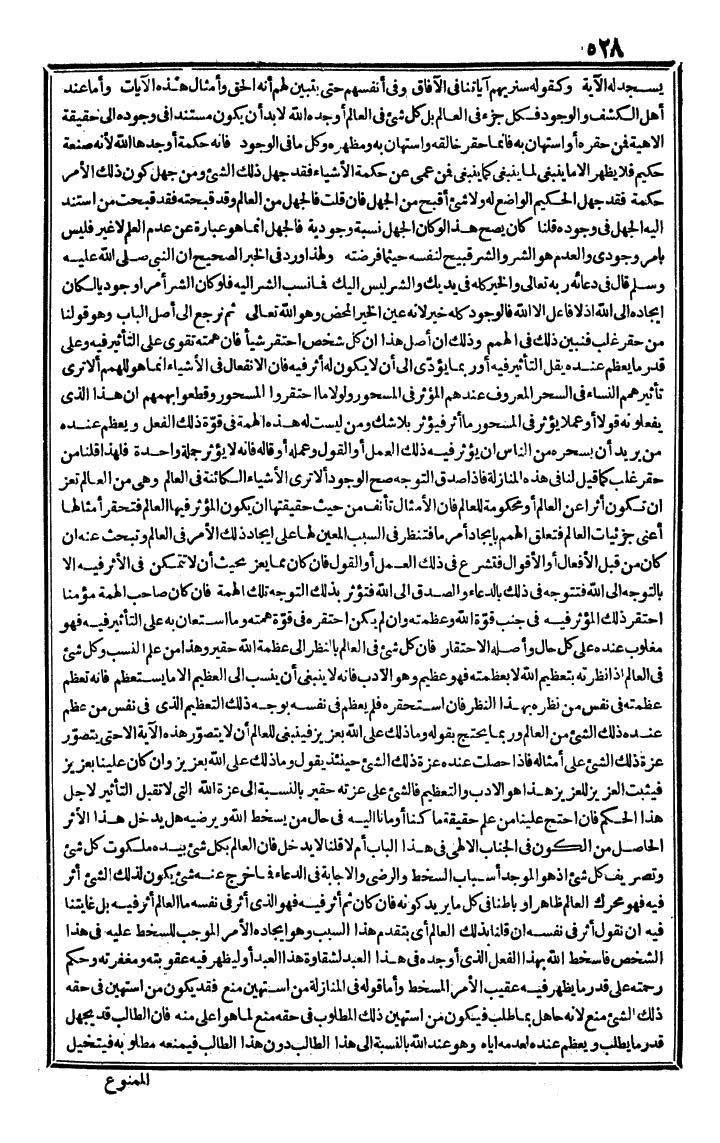 ٥٢٨
يسجد له الآية وكقوله سنريهم آياتنا فى الآفاق وفى أنفسهم حتى يتبين لهم أنه الحق وأمثال هذه الآيات وأما عند
أهل الكشف والوجود فكل جزء فى العالم بل كل شئ فى العالم أوجده الله لا بد أن يكون مستندا فى وجوده الى حقيقة
الاهية فن حقره أو استهان به فانما حقر خالقه واستهان به ومظهره وكل ما فى الوجود فانه حكمة أوجدها الله لأنه صنعة
حكيم فلا يظهر الا ما ينبغى لما ينبغى كما ينبغى فن عمى عن حكمة الأشياء فقد جهل ذلك الشئ ومن جهل كون ذلك الأمر
حكمة فقد جهل الحكيم الواضع له ولا شئ أقبح من الجهل فان قلت فالجهل من العالم وقد قبحته فقد قبحت من استند
اليه الجهل فى وجوده قلنا كان يصح هذا لو كان الجهل نسبة وجودية فالجهل انما هو عبارة عن عدم العلم لا غير فليس
بامر وجودى والعدم هو الشر والشر قبيح لنفسه حيثما فرضته ولهذا ورد فى الخبر الصحيح ان النبى صلى الله عليه
وسلم قال فى دعائه ربه تعالى والخير كله فى يديك والشر ليس اليك فما نسب الشر اليه فلو كان الشر أمرا وجوديا لكان
ايجاده الى الله اذ لا فاعل الا الله فالوجود كله خير لانه عين الخير المحض وهو الله تعالى ثم نرجع الى أصل الباب وهو قولنا
من حقر غلب فنبين ذلك فى الهمم وذلك ان أصل هذا ان كل شخص احتقر شيأ فان همته تقوى على التأثير فيه وعلى
قدر ما يعظم عنده يقل التأثير فيه أو ربما يؤدّى الى أن لا يكون له أثر فيه فان الانفعال فى الأشياء انما هو للهمم ألا ترى
تأثير همم النساء فى السحر المعروف عندهم المؤثر فى المسحور ولولا ما احتقروا المسحور وقطعوا بهممهم ان هذا الذى
يفعلونه قولا أو عملا يؤثر فى المسحور ما أثر فيؤثر بلا شك ومن ليست له هذه الهمة فى قوّة ذلك الفعل ويعظم عنده
من يريد أن يسحره من الناس ان يؤثر فيه ذلك العمل أو القول وعمله أو قاله فانه لا يؤثر جملة واحدة فلهذا قلنا من
حقر غلب كما قيل لنا فى هذه المنازلة فاذا صدق التوجه صح الوجود ألا ترى الأشياء الكائنة فى العالم وهى من العالم تعز
ان تكون أثرا عن العالم أو محكومة للعالم فان الأمثال تأنف من حيث حقيقتها ان يكون المؤثر فيها العالم فتحقر أمثالها
أعنى جزئيات العالم فتعلق الهمم بايجاد أمر ما فتنظر فى السبب المعين لها على ايجاد ذلك الأمر فى العالم وتبحث عنه ان
كان من قبل الأفعال أو الأقوال فتشرع فى ذلك العمل أو القول فان كان مما يعز بحيث أن لا تتمكن فى الأثر فيه الا
بالتوجه الى الله فتتوجه فى ذلك بالدعاء والصدق الى الله فتؤثر بذلك التوجه تلك الهمة فان كان صاحب الهمة مؤمنا
احتقر ذلك المؤثر فيه فى جنب قوّة الله وعظمته وان لم يكن احتقره فى قوّة همته وما استعان به على التأثير فيه فهو
مغلوب عنده على كل حال وأصله الاحتقار فان كل شئ فى العالم بالنظر الى عظمة الله حقير وهذا من علم النسب وكل شئ
فى العالم اذا نظرته بتعظيم الله لا بعظمته فهو عظيم وهو الادب فانه لا ينبغى أن ينسب الى العظيم الا ما يستعظم فانه تعظم
عظمته فى نفس من نظره بهذا النظر فان استحقره فلم يعظم فى نفسه بوجه ذلك التعظيم الذى فى نفس من عظم
عنده ذلك الشئ من العالم وربما يحتج بقوله وما ذلك على الله بعزيز فينبغى للعالم أن لا يتصوّر هذه الآية الا حتى يتصوّر
عزة ذلك الشئ على أمثاله فاذا حصلت عنده عزة ذلك الشئ حينئذ يقول وما ذلك على الله بعزيز وان كان علينا بعزيز
فيثبت العزيز للعزيز هذا هو الادب والتعظيم فالشئ على عزته حقير بالنسبة الى عزة الله التى لا تقبل التأثير لاجل
هذا الحكم فان احتج علينا من علم حقيقة ما كنا أومأنا اليه فى حال من يسخط الله ويرضيه هل يدخل هذا الأثر
الحاصل من الكون فى الجناب الالهى فى هذا الباب أم لا قلنا لا يدخل فان العالم بكل شئ بيده ملكوت كل شئ
وتصريف كل شئ اذ هو الموجد أسباب السخط والرضى والاجابة فى الدعاء فما خرج عنه شئ يكون لذلك الشئ أثر
فيه فهو محرك العالم ظاهرا وباطنا فى كل ما يريد كونه فان كان ثم أثر فيه فهو الذى أثر فى نفسه ما العالم أثر فيه بل غايتنا
فيه ان نقول أثر فى نفسه ان قلنا بذلك العالم أى بتقدم هذا السبب وهو ايجاده الأمر الموجب للسخط عليه فى هذا
الشخص فاسخط الله بهذا الفعل الذى أوجده فى هذا العبد لشقاوة هذا العبد أو ليظهر فيه عقوبته ومغفرته وحكم
رحمته على قدر ما يظهر فيه عقيب الأمر المسخط وأما قوله فى المنازلة من استهين منع فقد يكون من استهين فى حقه
ذلك الشئ منع لأنه جاهل بما طلب فيكون من استهين ذلك المطلوب فى حقه منع لما هو أعلى منه فان الطالب قد يجهل
قدر ما يطلب ويعظم عنده لعدمه اياه وهو عند الله بالنسبة الى هذا الطالب دون هذا الطالب فيمنعه مطلوبه فيتخيل
الممنوع